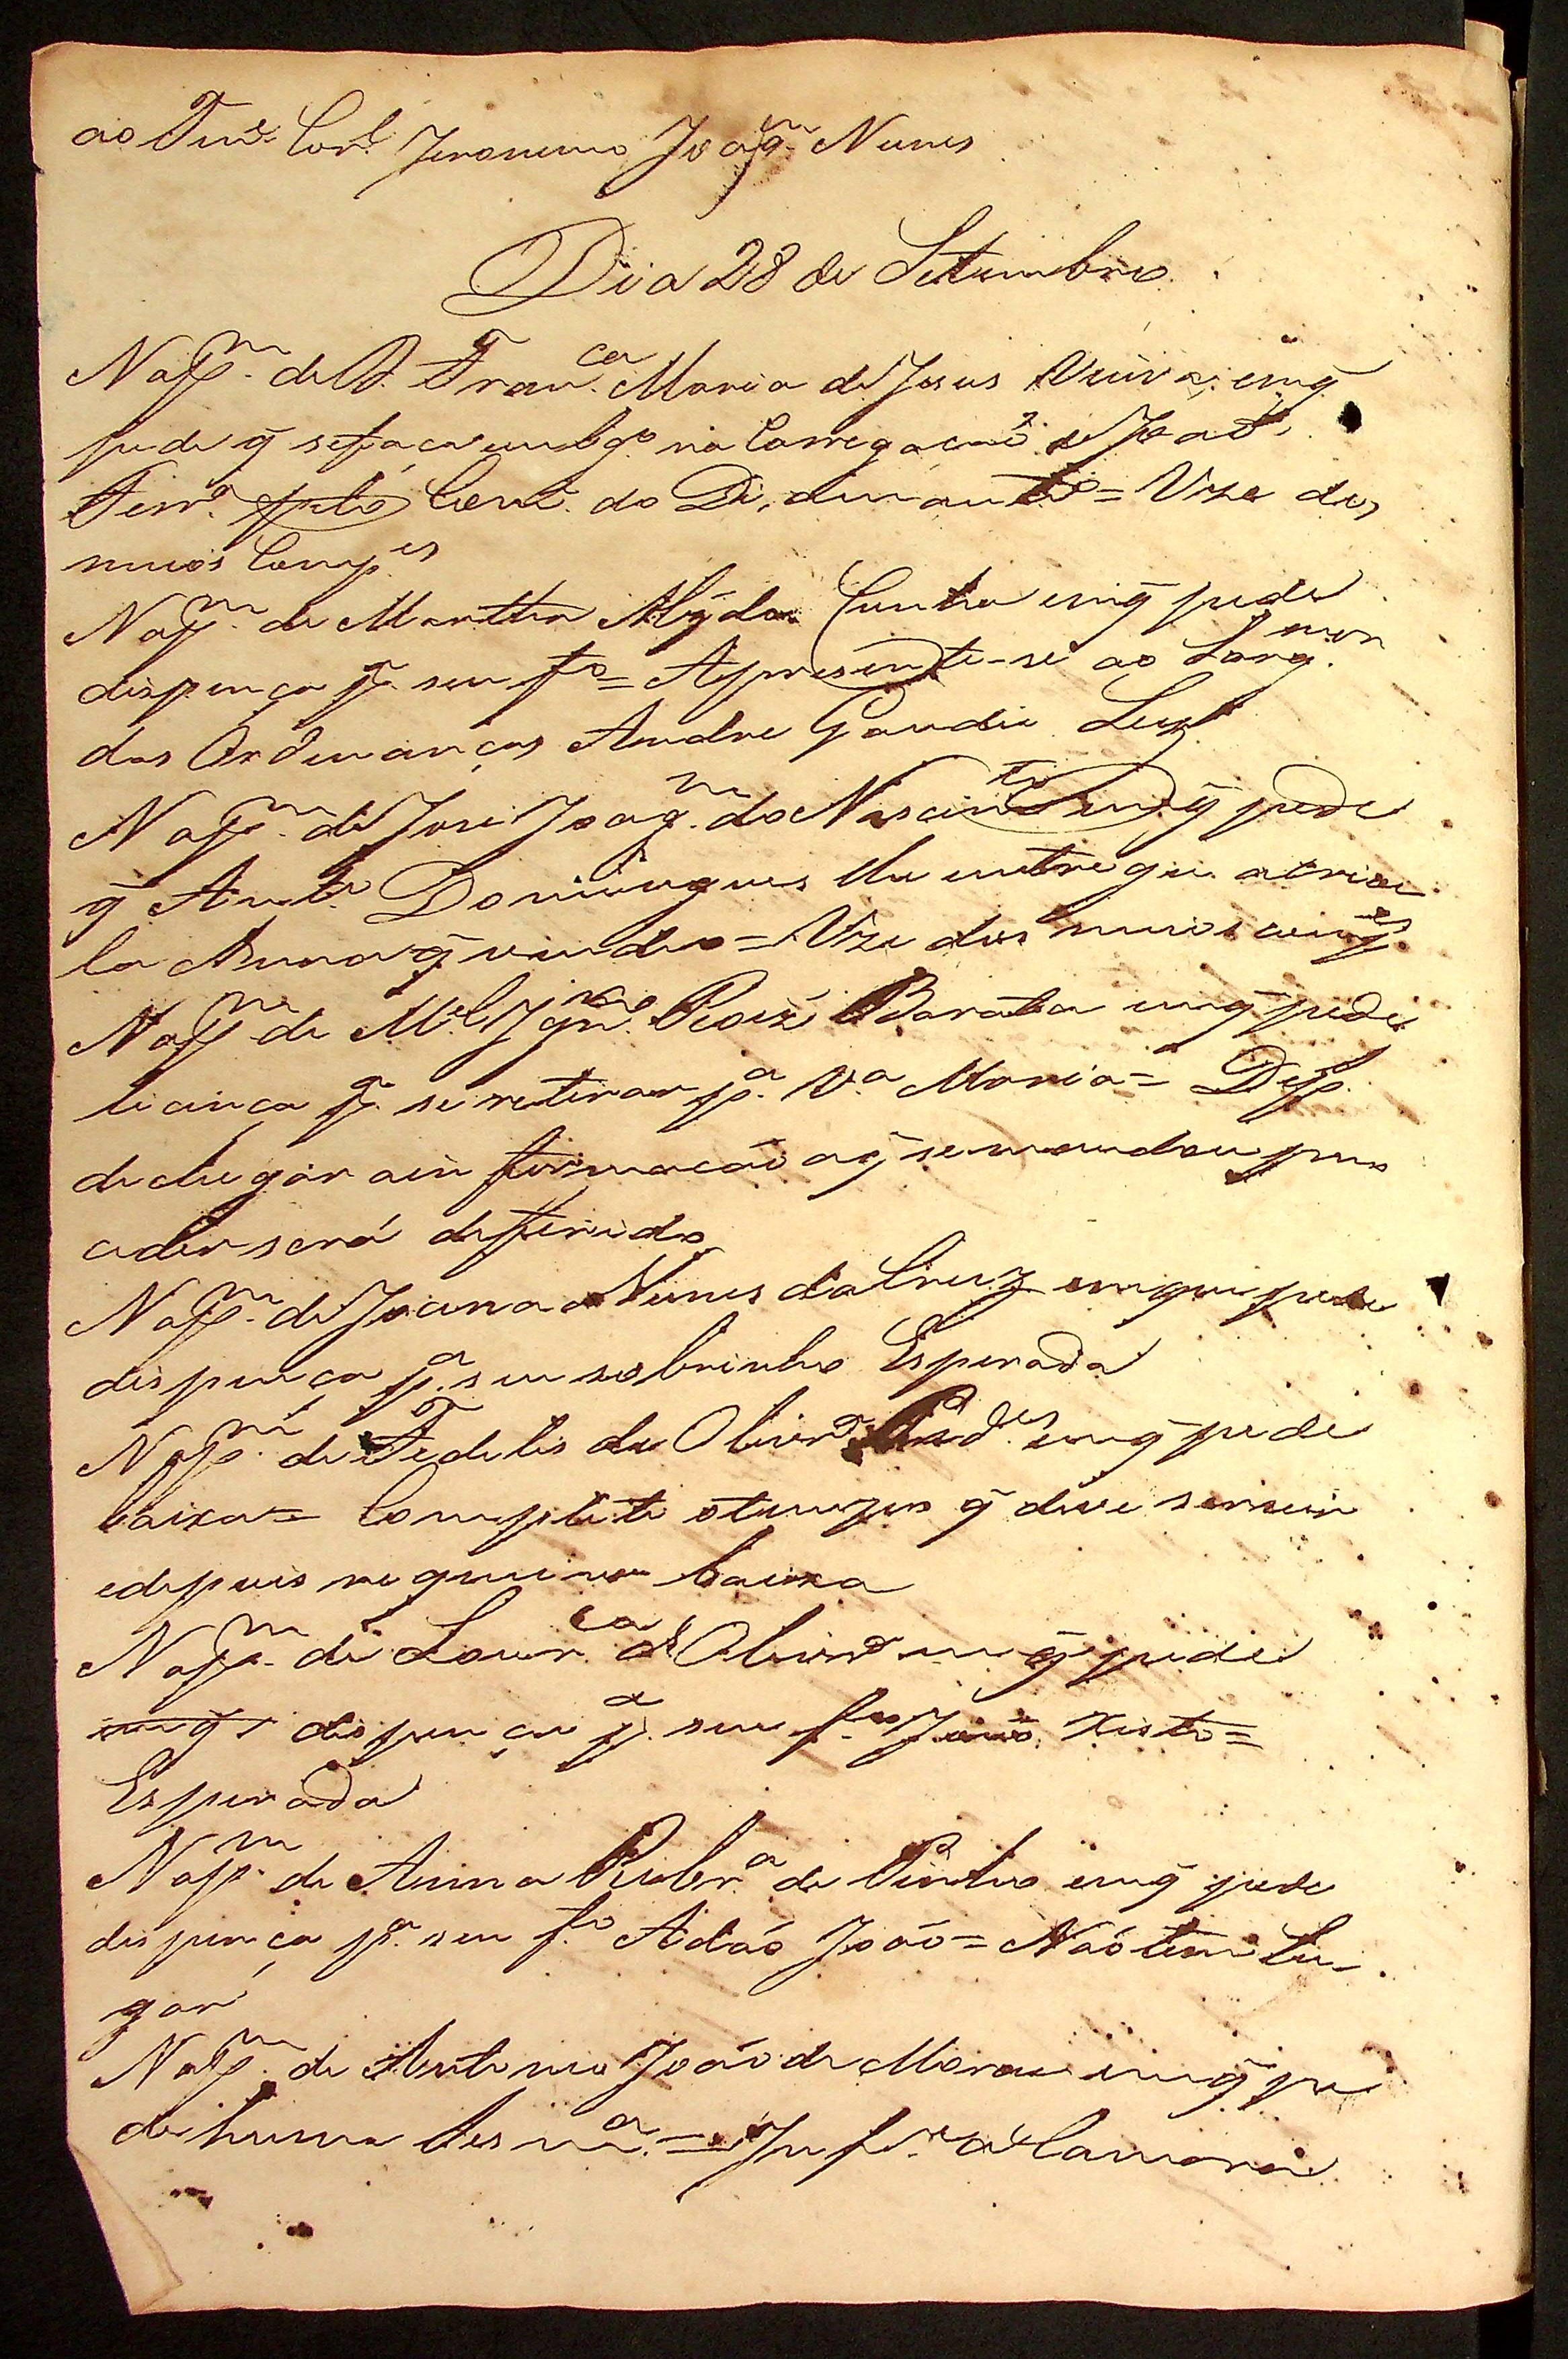 ao Tene. Corel. Jeronimo Joaqm. Nunes
Dia 28 de Setembro
Na pm. de D. Franca. Maria de Jesus Viuva, em q̃
pede q̃ se faça embgo. na Carregação de João
Ferra. Cout. do = Uze dos
meios Compes
Na pm. de Martha da Cunha em q̃ pede
dispença pa. seu fo = Aprezente-se ao Sargmor
das Ordenanças Andre Gaudie Ley
Na pm. de Jose Joaqm. do Nascimto em q̃ pede
q̃ Anto. Domingues lhe entregue a crioa
la Anna q̃ vendeo = Uze dos meios comp̃es
Na pm. de Mel. Ignco. Barata em q̃ pede
licença pa. se retirar pa. Va. Maria = Dep.
de chegar a in formação a q̃ se mandou pro
ceder será deferido
Na pm. de Joanna Nunes da Cruz em que pede
dispença pa. seu sobrinho Esperada
Na pm. de Fedelis de Olivra. em q̃ pede
baixa = Complete o tempo q̃ deve servir
e depois requeira baixa
Na pm. de Lourca. de Olivra em q̃ pede
em q̃ dispença pa. seu fo. João Xisto =
Esperada
Na pm. de Anna Ribra. de Pinho em q̃ pede
dispença pa. seu fo. Adáo João = Não tem lu
gar
Na pm. de Antonio João de Moraes em q̃ pe
de huma Sesma. = Infe. a Camara